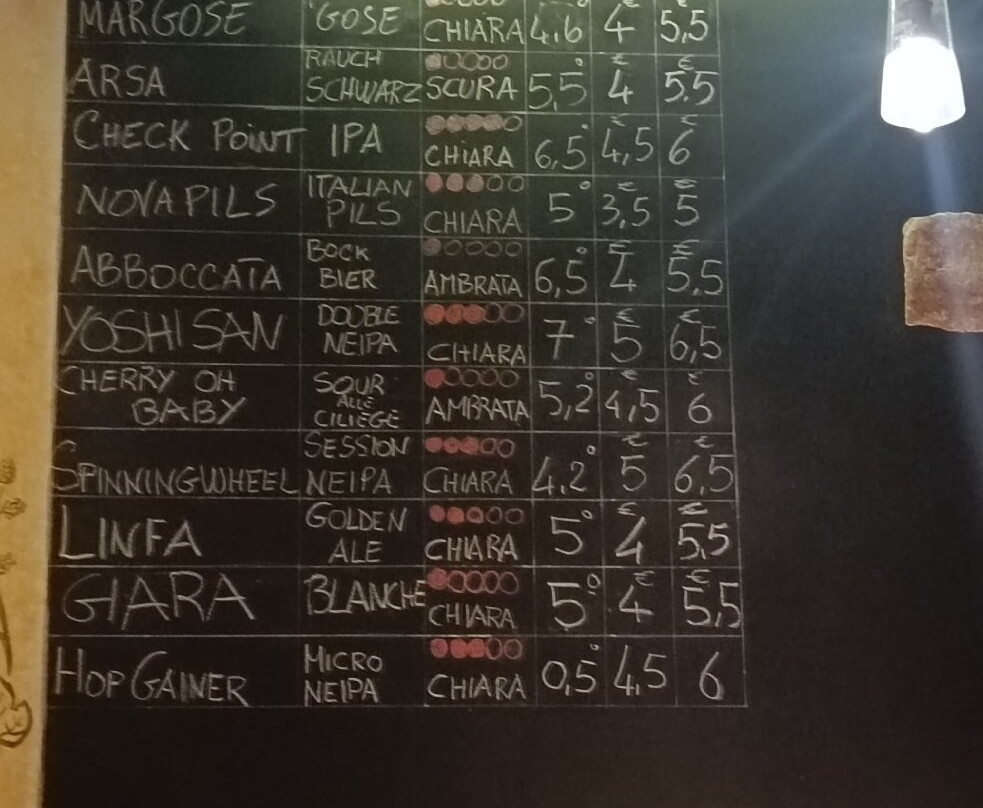 MARGOSE GOSE CHIARA 4,6° 4€ 5,5€
ARSA RAUCH SCHWARZ SCURA 5,5° 4€ 5,5€
CHECK POINT IPA CHIARA 6,5° 4,5€ 6€
NOVAPILS ITALIAN PILS CHIARA 5° 3,5€ 5€
ABBOCCATA BOCK BIER AMBRATA 6,5° 4€ 5,5€
YOSHI SAN DOUBLE NEIPA CHIARA 7° 5€ 6,5€
CHERRY OH BABY SOUR ALLE CILIEGE AMBRATA 5,2° 4,5€ 6€
SPINNINGWHEEL SESSION NEIPA CHIARA 4,2° 5€ 6,5€
LINFA GOLDEN ALE CHIARA 5° 4€ 5,5€
GIARA BLANCHE CHIARA 5° 4€ 5,5€
HOP GAINER MICRO NEIPA CHIARA 0,5° 4,5 6